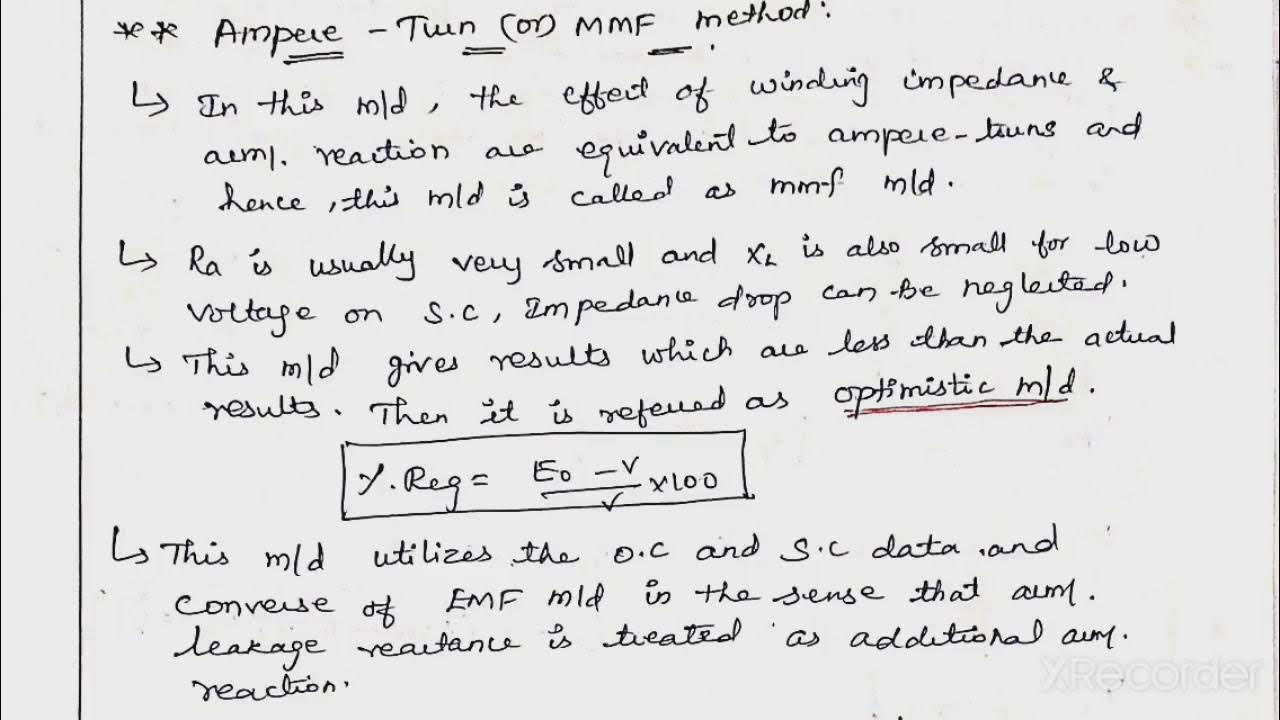 ** Ampere - Turn (or) MMF method:
↳ In this m/d, the effect of winding impedance &
arm. reaction are equivalent to ampere-turns and
hence, this m/d is called as mmf m/d.
↳ Ra is usually very small and XL is also small for low
voltage on S.C, Impedance drop can be neglected.
↳ This m/d gives results which are less than the actual
results. Then it is referred as optimistic m/d.
%.Reg = E0 - V / V ×100
↳ This m/d utilizes the O.C and S.C data .and
converse of EMF m/d in the sense that arm.
leakage reactance is treated as additional arm.
reaction.
XRecorder